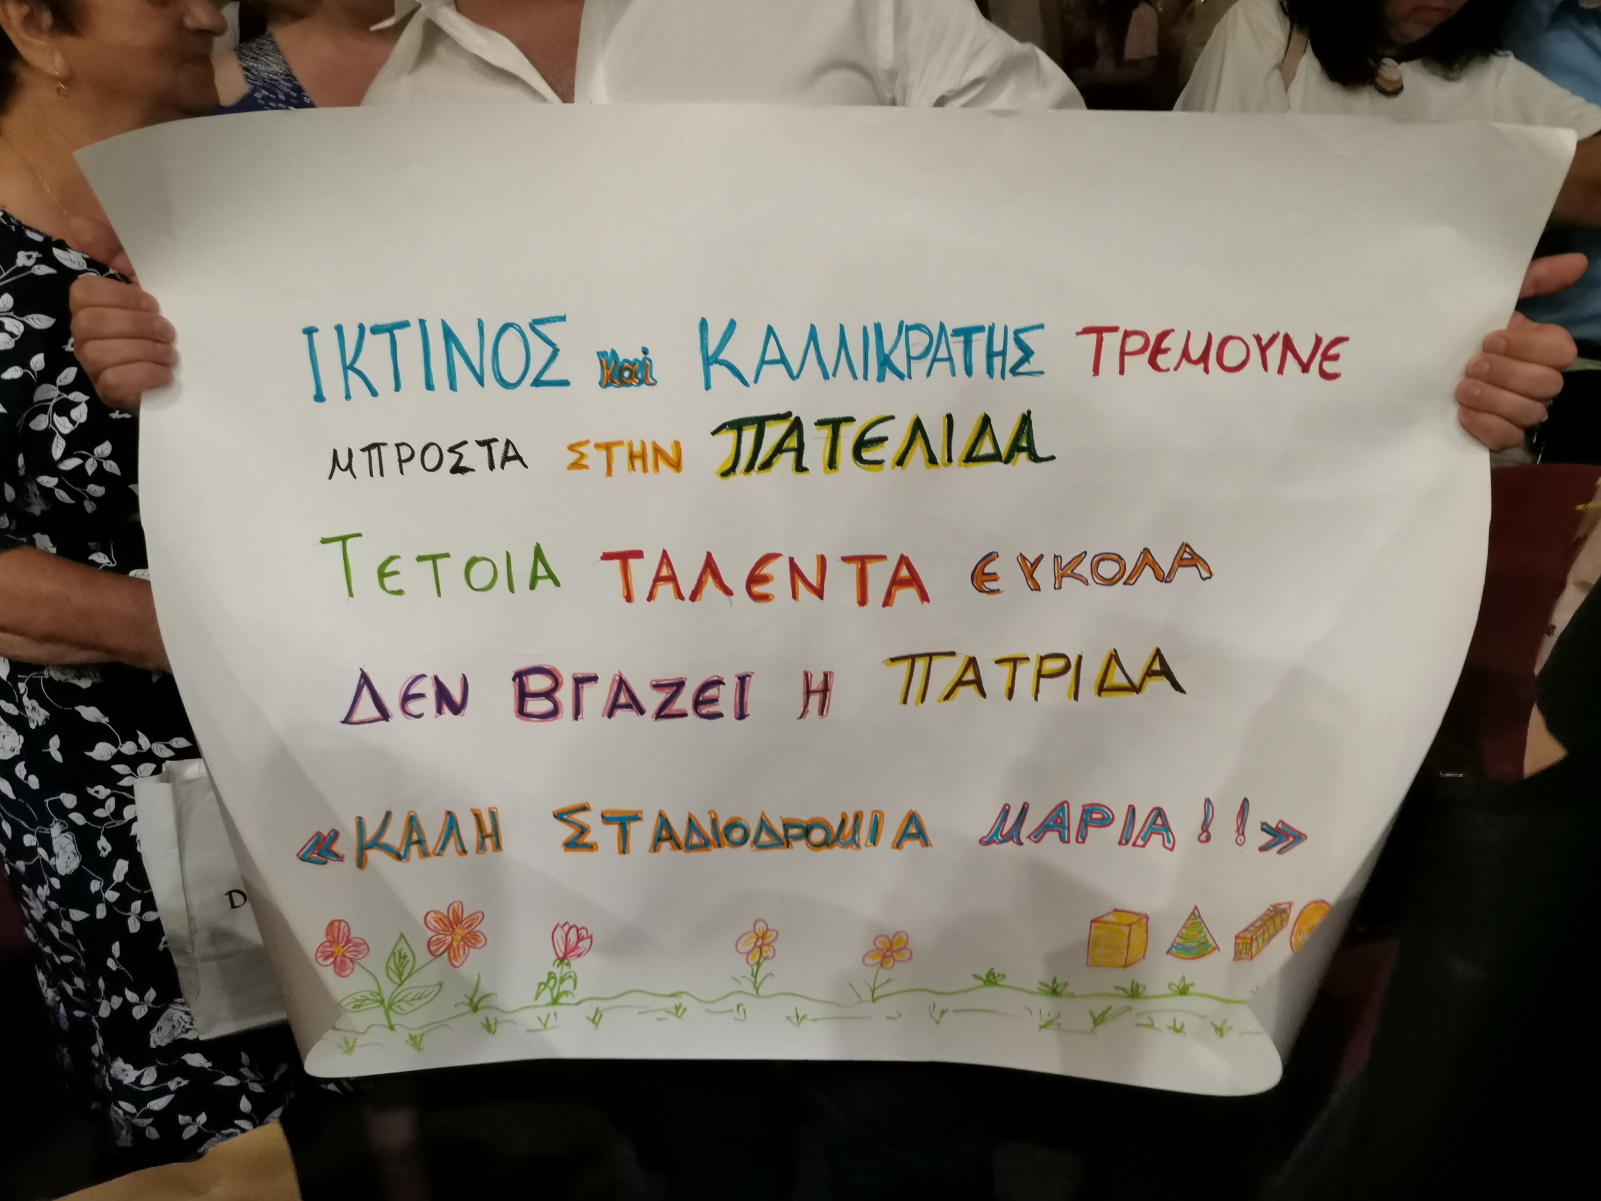 ΙΚΤΙΝΟΣ καί ΚΑΛΛΙΚΡΑΤΗΣ ΤΡΕΜΟΥΝΕ
ΜΠΡΟΣΤΑ ΣΤΗΝ ΠΑΤΕΛΙΔΑ
ΤΕΤΟΙΑ ΤΑΛΕΝΤΑ ΕΥΚΟΛΑ
ΔΕΝ ΒΓΑΖΕΙ Η ΠΑΤΡΙΔΑ
«ΚΑΛΗ ΣΤΑΔΙΟΔΡΟΜΙΑ ΜΑΡΙΑ!!»